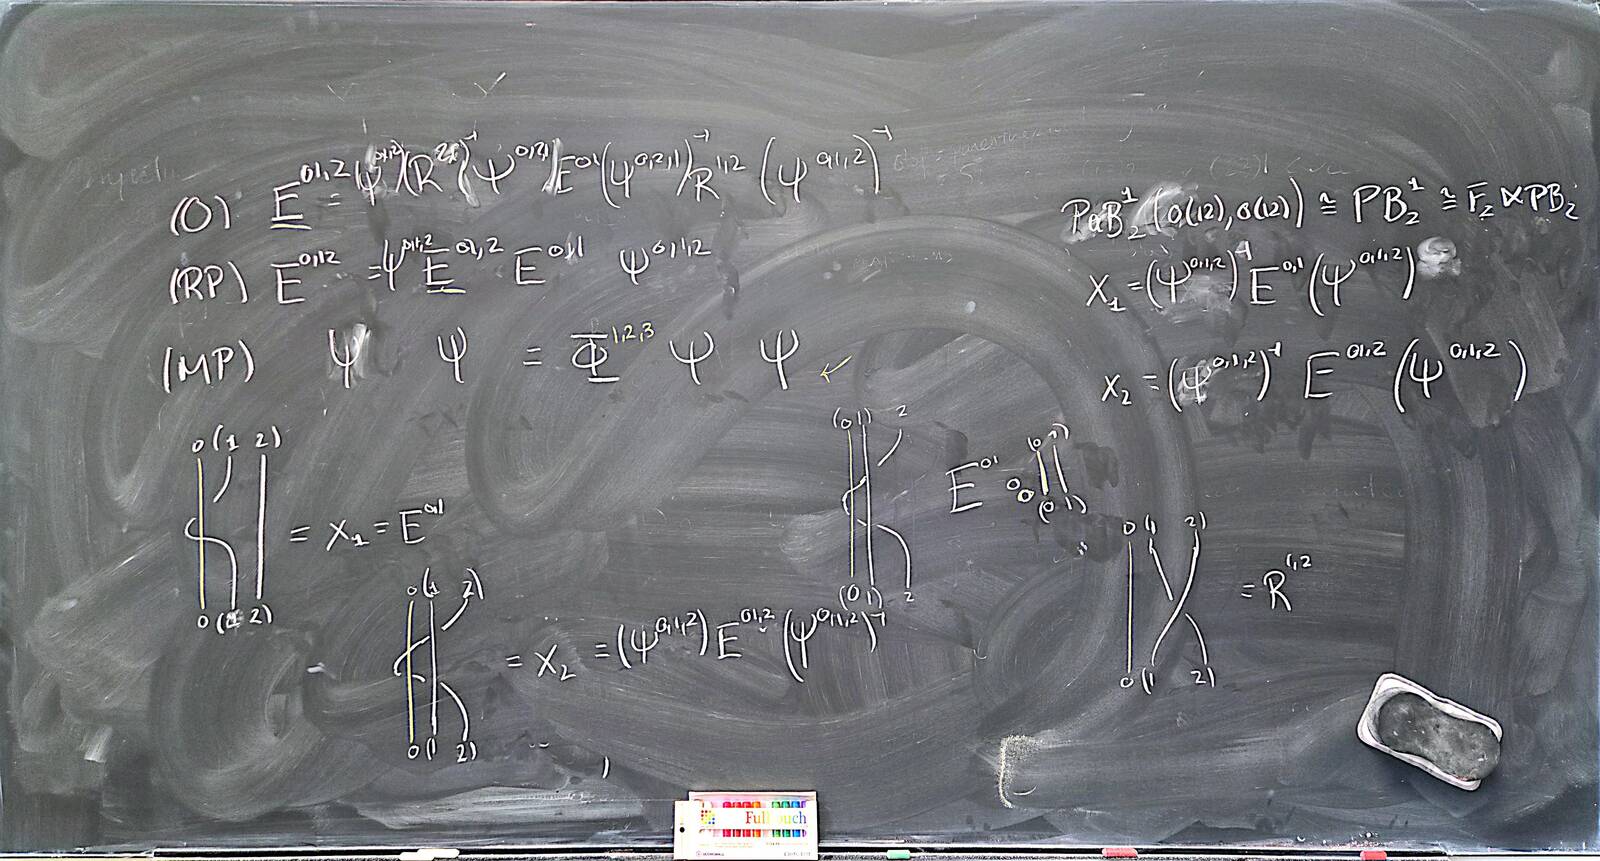 (O) E^{01,2} = Ψ^{0,1,2} (R^{2,1})^{-1} Ψ^{0,2,1} E^{0,1} (Ψ^{0,2,1})^{-1} R^{1,2} (Ψ^{0,1,2})^{-1}
(RP) E^{0,12} = Ψ^{0,1,2} E^{01,2} E^{0,1} Ψ^{0,1,2}
(MP) Ψ Ψ = Φ^{1,2,3} Ψ Ψ
PaB_2^1 (0(12), 0(12)) ≅ PB_2^1 ≅ F_2 ⋊ PB_2
X_1 = (Ψ^{0,1,2})^{-1} E^{0,1} (Ψ^{0,1,2})
X_2 = (Ψ^{0,1,2})^{-1} E^{01,2} (Ψ^{0,1,2})
0 (1 2)
= X_1 = E^{0,1}
0 (1 2)
0 (1 2)
= X_2 = (Ψ^{0,1,2}) E^{01,2} (Ψ^{0,1,2})^{-1}
0 (1 2)
(0 1) 2
(0 1) 2
E^{0,1}
(0 1)
(0 1)
0 (1 2)
= R^{1,2}
0 (1 2)
Full Touch